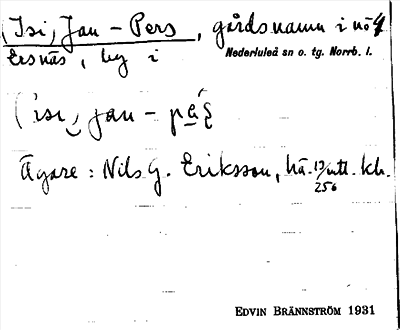 (Isi) Jan - Pers, gårdsnamn i nº 4
Ersnäs, by i Nederluleå sn o. tg. Norrb. l.
Ägare: Nils G. Eriksson, hä. 13/256 mtl. kr.
EDVIN BRÄNNSTRÖM 1931